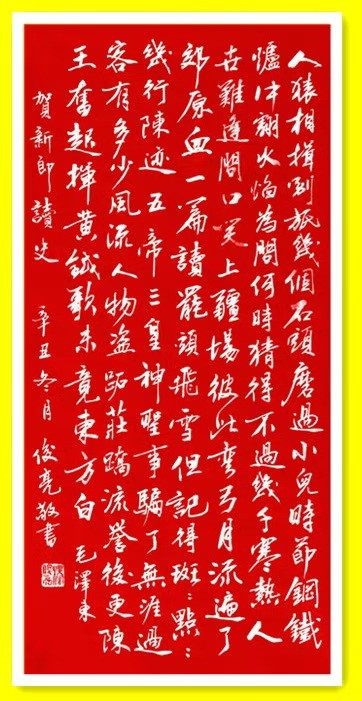 人猿相揖別祇幾個石頭磨過小兒時節銅鐵
爐中翻火焰為問何時猜得不過幾千寒熱人
世難逢開口笑上疆場彼此彎弓月流遍了
郊原血一篇讀罷頭飛雪但記得斑:點:
幾行陳迹五帝三皇神聖事騙了無涯過
客有多少風流人物盜跖莊蹻流譽後更陳
王奮起揮黄鉞歌未竟東方白 毛澤東
賀新郎讀史 辛丑冬月 俊亮敬書